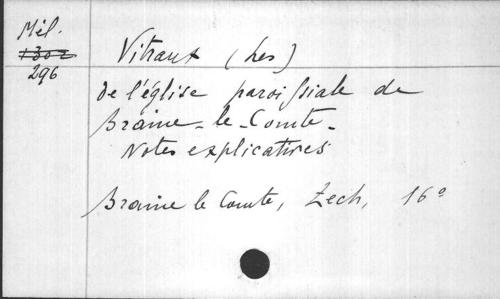 Mél.
1302
296
Vitraux (Les)
de l'église paroissiale de
Braine-le-Comte.
Notes explicatives
Braine le Comte, Zech, 16°